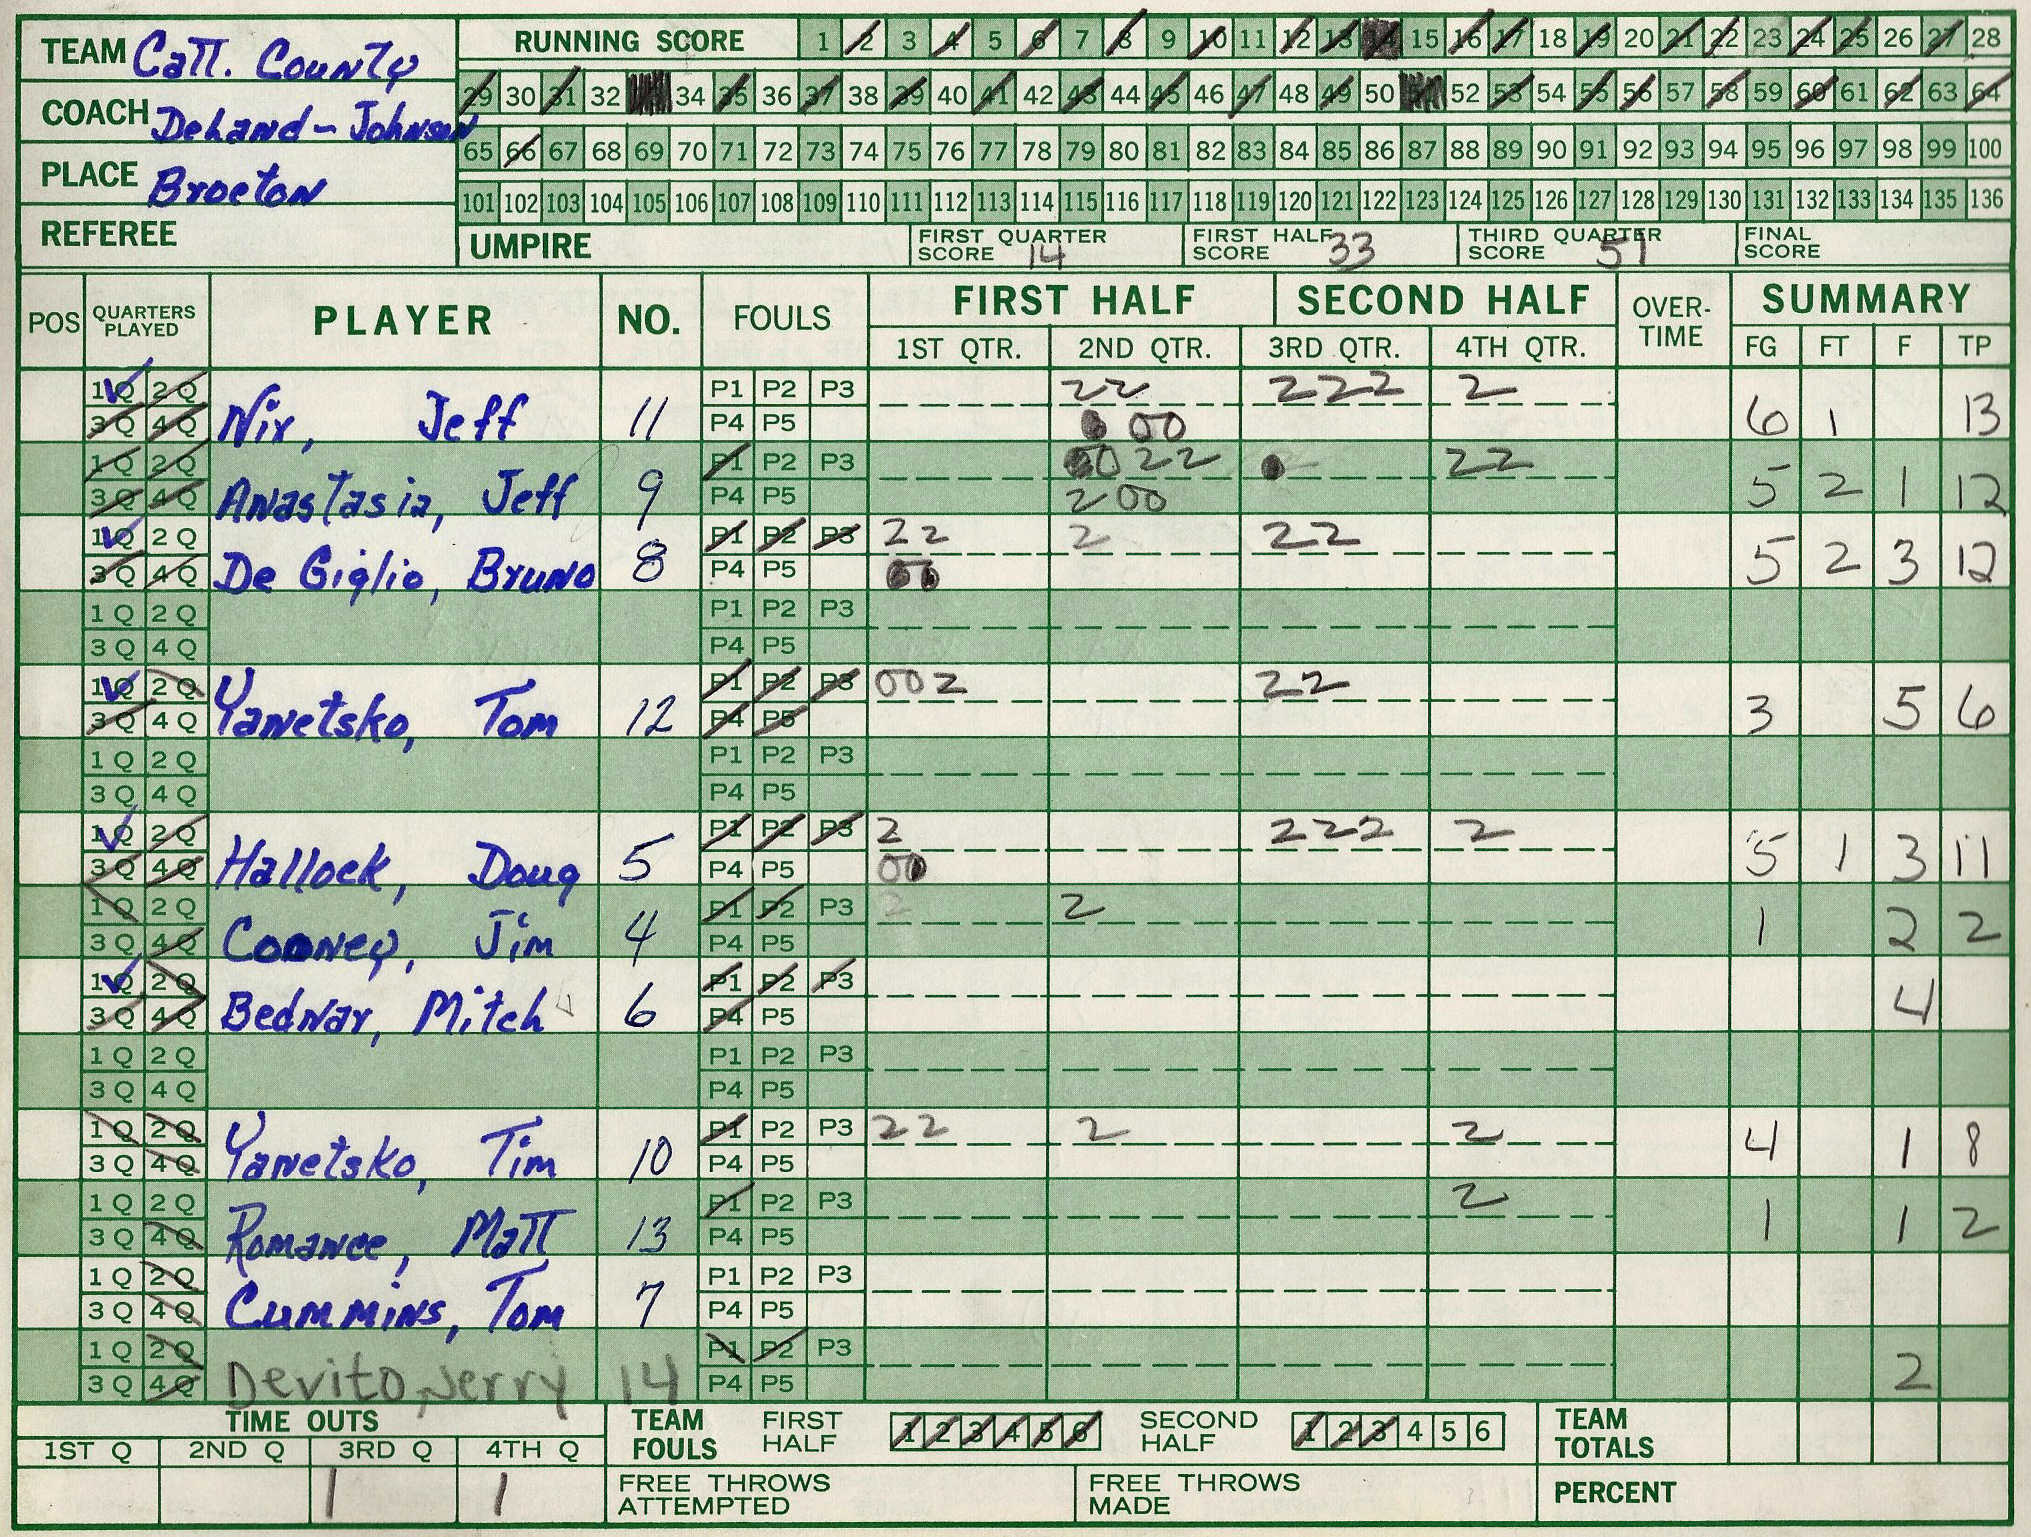 TEAM Catt. County
COACH DeLand - Johnson
PLACE Brocton
REFEREE
RUNNING SCORE 1 2 3 4 5 6 7 8 9 10 11 12 13 14 15 16 17 18 19 20 21 22 23 24 25 26 27 28
29 30 31 32 34 35 36 37 38 39 40 41 42 43 44 45 46 47 48 49 50 52 53 54 55 56 57 58 59 60 61 62 63 64
65 66 67 68 69 70 71 72 73 74 75 76 77 78 79 80 81 82 83 84 85 86 87 88 89 90 91 92 93 94 95 96 97 98 99 100
101 102 103 104 105 106 107 108 109 110 111 112 113 114 115 116 117 118 119 120 121 122 123 124 125 126 127 128 129 130 131 132 133 134 135 136
UMPIRE FIRST QUARTER SCORE 14 FIRST HALF SCORE 33 THIRD QUARTER SCORE 51 FINAL SCORE
POS QUARTERS PLAYED PLAYER NO. FOULS FIRST HALF SECOND HALF OVER-TIME SUMMARY
1ST QTR. 2ND QTR. 3RD QTR. 4TH QTR. FG FT F TP
1 Q 2 Q P1 P2 P3 2 2 2 2 2 2
3 Q 4 Q Nix, Jeff 11 P4 P5 0 0 6 1 13
1 Q 2 Q P1 P2 P3 0 2 2 2 2
3 Q 4 Q Anastasia, Jeff 9 P4 P5 2 0 0 5 2 1 12
1 Q 2 Q P1 P2 P3 2 2 2 2 2
3 Q 4 Q De Giglio, Bruno 8 P4 P5 5 2 3 12
1 Q 2 Q P1 P2 P3
3 Q 4 Q P4 P5
1 Q 2 Q P1 P2 P3 0 0 2 2 2
3 Q 4 Q Yanetsko, Tom 12 P4 P5 3 5 6
1 Q 2 Q P1 P2 P3
3 Q 4 Q P4 P5
1 Q 2 Q P1 P2 P3 2 2 2 2 2
3 Q 4 Q Hallock, Doug 5 P4 P5 0 0 5 1 3 11
1 Q 2 Q P1 P2 P3 2
3 Q 4 Q Cooney, Jim 4 P4 P5 1 2 2
1 Q 2 Q P1 P2 P3
3 Q 4 Q Bednar, Mitch 6 P4 P5 4
1 Q 2 Q P1 P2 P3
3 Q 4 Q P4 P5
1 Q 2 Q P1 P2 P3 2 2 2 2
3 Q 4 Q Yanetsko, Tim 10 P4 P5 4 1 8
1 Q 2 Q P1 P2 P3 2
3 Q 4 Q Romance, Matt 13 P4 P5 1 1 2
1 Q 2 Q P1 P2 P3
3 Q 4 Q Cummins, Tom 7 P4 P5
1 Q 2 Q P1 P2 P3
3 Q 4 Q Devito, Jerry 14 P4 P5 2
TIME OUTS TEAM FOULS FIRST HALF 1 2 3 4 5 6 SECOND HALF 1 2 3 4 5 6 TEAM TOTALS
1ST Q 2ND Q 3RD Q 4TH Q
1 1 FREE THROWS ATTEMPTED FREE THROWS MADE PERCENT